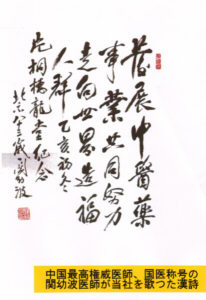 發展中醫藥
事業共同努力
走向世界造福
人群 乙亥初冬
片桐棲龍堂纪念
北京八十三歲関幼波
中国最高権威医師、国医称号の
関幼波医師が当社を歌つた漢詩